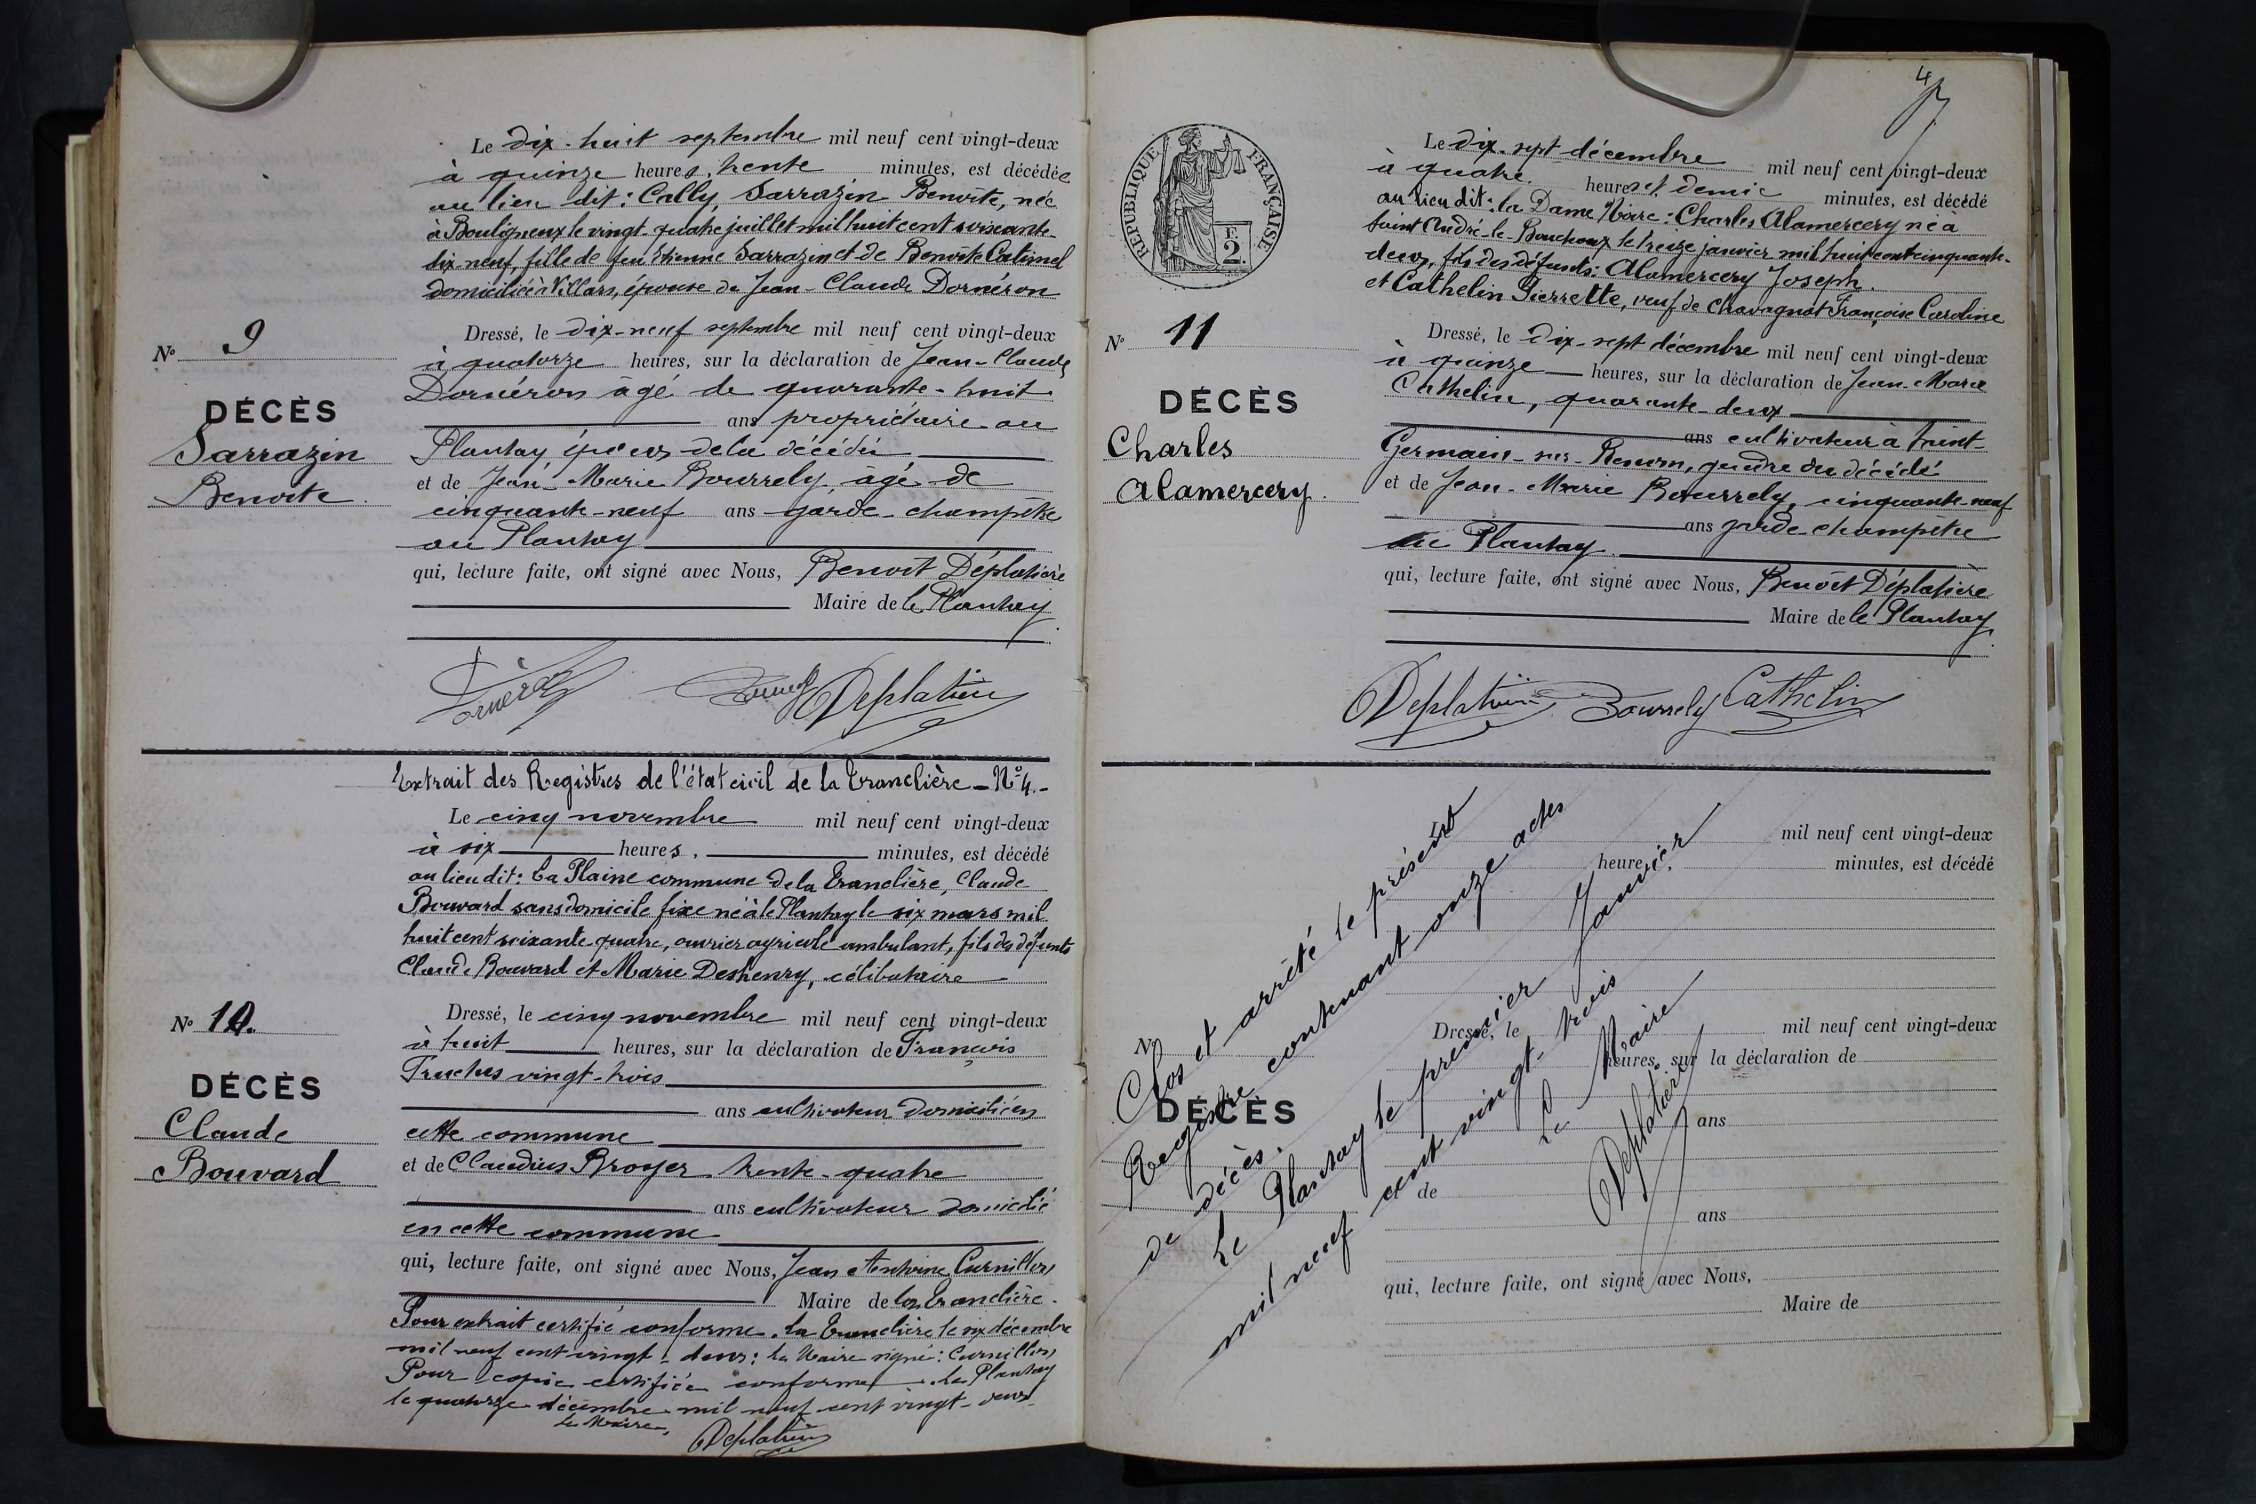 Le dix-huit septembre mil neuf cent vingt-deux
à quinze heures, trente minutes, est décédée
au lieu dit: Cally, Sarrazin Benoîte, née
à Bouligneux le vingt-quatre juillet mil huit cent soixante-
dix-neuf, fille de feu Etienne Sarrazin et de Benoîte Catimel
domiciliée à Villars, épouse de Jean-Claude Dornéron
N° 9
DÉCÈS
Sarrazin
Benoite
Dressé, le dix-neuf septembre mil neuf cent vingt-deux
à quatorze heures, sur la déclaration de Jean-Claude
Dornéron âgé de quarante-huit
ans propriétaire au
Plantay époux de la décédée
et de Jean-Marie Bourrely, âgé de
cinquante-neuf ans garde-champêtre
au Plantay
qui, lecture faite, ont signé avec Nous, Benoît Déplatière
Maire de le Plantay
Deplatière
Extrait des Registres de l'état civil de la Tranclière - N° 4. -
Le cinq novembre mil neuf cent vingt-deux
à six heures, minutes, est décédé
au lieu dit: La Plaine commune de la Tranclière, Claude
Bouvard sans domicile fixe né à le Plantay le six mars mil
huit cent soixante-quatre, ouvrier agricole ambulant, fils des défunts
Claude Bouvard et Marie Deshenry, célibataire
N° 10.
DÉCÈS
Claude
Bouvard
Dressé, le cinq novembre mil neuf cent vingt-deux
à huit heures, sur la déclaration de François
Truches vingt-trois
ans cultivateur domicilié en
cette commune
et de Claudius Broyer trente-quatre
ans cultivateur domicilié
en cette commune
qui, lecture faite, ont signé avec Nous, Jean Antoine Curnillon
Maire de la Tranclière.
Pour extrait certifié conforme. la Tranclière le six décembre
mil neuf cent vingt-deux: Le Maire signé: Curnillon
Pour copie certifiée conforme Le Plantay
le quatorze décembre mil neuf cent vingt-deux
Le Maire,
Deplatière
47
RÉPUBLIQUE FRANÇAISE
F.
2.
Le dix-sept décembre mil neuf cent vingt-deux
à quatre heures et demie minutes, est décédé
au lieu dit: la Dame Noire: Charles Alamercery né à
Saint André-le-Bouchoux le treize janvier mil huit cent cinquante-
deux, fils des défunts: Alamercery Joseph
et Cathelin Pierrette, veuf de Chavagnat Françoise Caroline
N° 11
DÉCÈS
Charles
Alamercery.
Dressé, le dix-sept décembre mil neuf cent vingt-deux
à quinze heures, sur la déclaration de Jean-Marie
Cathelin, quarante-deux
ans cultivateur à Saint-
Germain-sur-Renom, gendre du décédé
et de Jean-Marie Bourrely, cinquante-neuf
ans garde-champêtre
au Plantay
qui, lecture faite, ont signé avec Nous, Benoît Déplatière
Maire de le Plantay.
Deplatière Bourrely Cathelin
Le mil neuf cent vingt-deux
heure minutes, est décédé
N°
DÉCÈS
Dressé, le mil neuf cent vingt-deux
heures, sur la déclaration de
ans
et de
ans
qui, lecture faite, ont signé avec Nous,
Maire de
Clos et arrêté le présent
Registre contenant onze actes
de décès.
Le Plantay le premier Janvier
mil neuf cent vingt-trois
Le Maire
Deplatière